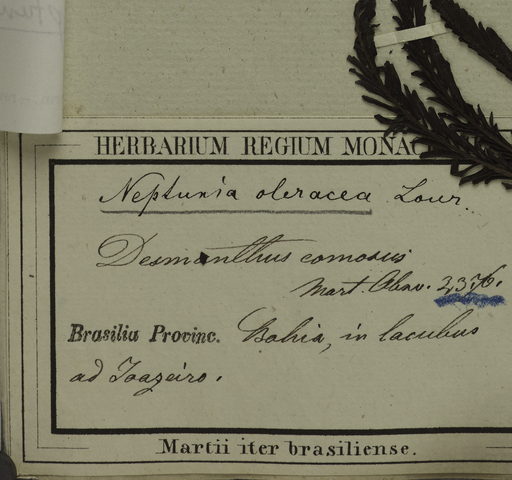 HERBARIUM REGIUM MONAC
Neptunia oleracea Lour.
Desmanthus comosus
Mart. Obsv. 2376.
Brasilia Provinc. Bahia, in lacubus
ad Joazeiro.
Martii iter brasiliense.